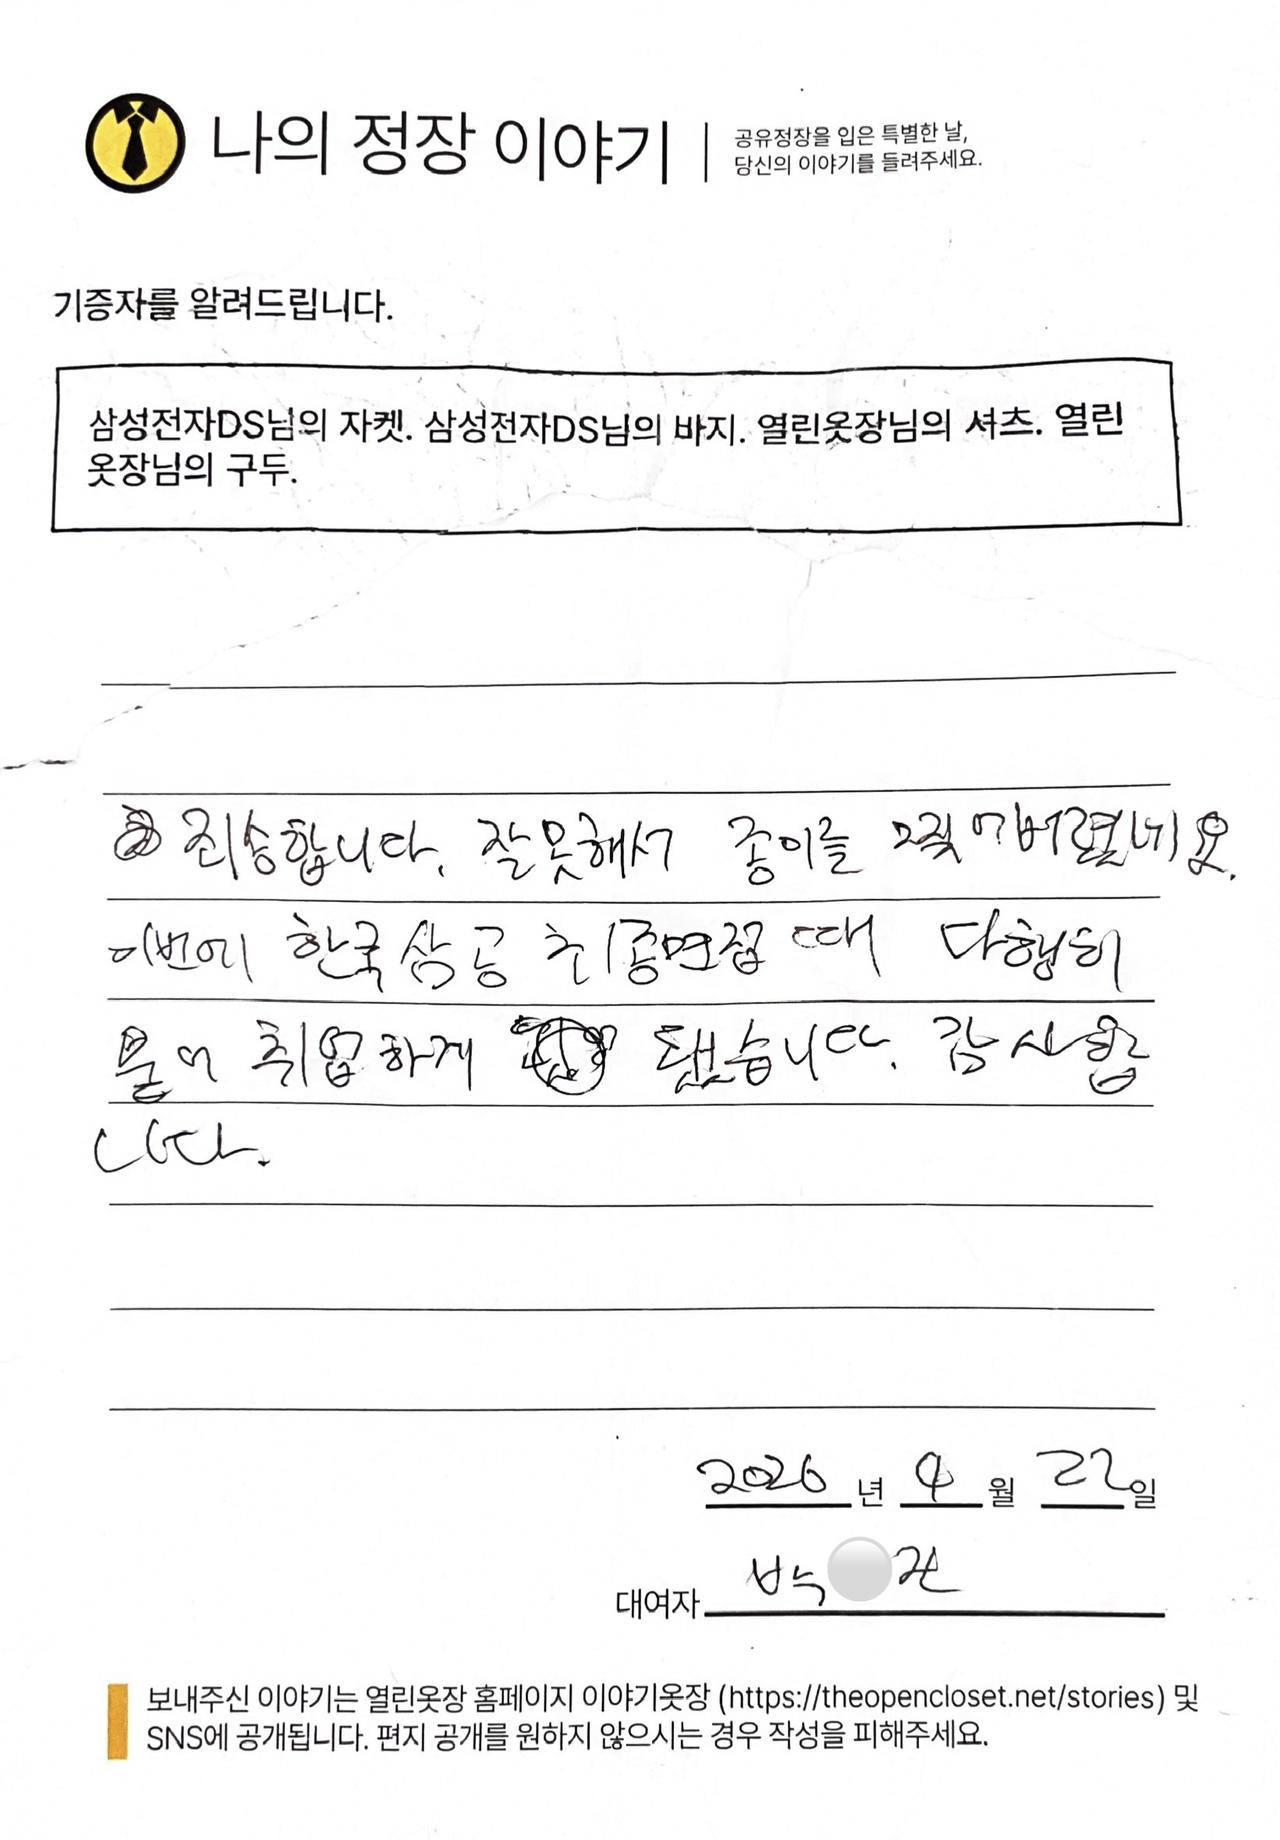 나의 정장 이야기
공유정장을 입은 특별한 날,
당신의 이야기를 들려주세요.
기증자를 알려드립니다.
삼성전자DS님의 자켓. 삼성전자DS님의 바지. 열린옷장님의 셔츠. 열린
옷장님의 구두.
죄송합니다. 잘못해서 종이를 찢어버렸네요.
이번에 한국상공 최종면접 때 다행히
붙어 취업하게 됐습니다. 감사합
니다.
2026 년 4 월 22일
박 건
대여자
보내주신 이야기는 열린옷장 홈페이지 이야기옷장 (https://theopencloset.net/stories) 및
SNS에 공개됩니다. 편지 공개를 원하지 않으시는 경우 작성을 피해주세요.